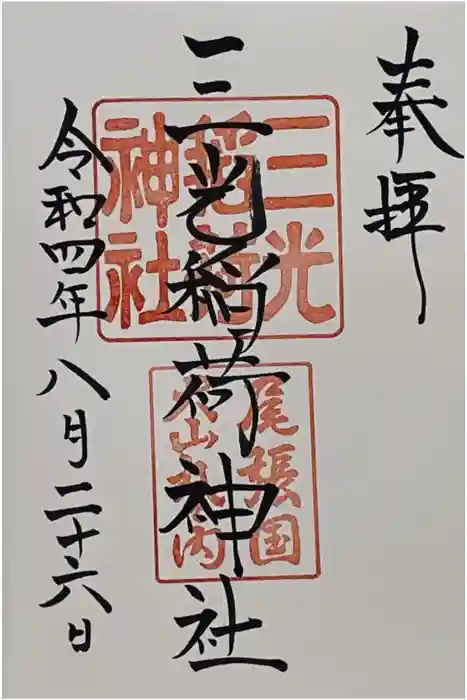 奉拝
三光稲荷神社
令和四年八月二十六日
三光
稲荷
神社
尾張国
犬山城内